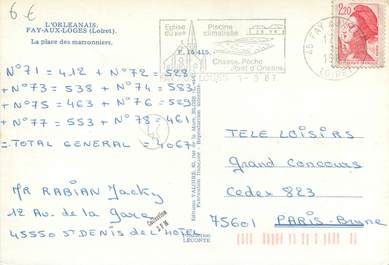 6€
L'ORLEANAIS.
FAY-AUX-LOGES (Loiret).
La place des marronniers.
Eglise
du XIIIe
Piscine
climatisée
Chasse, Pêche
Forêt d'Orléans
LOGES 1-9 87
45 FAY AUX
LOIRET
2,20
F. 16 415.
N°71 = 412 + N°72 = 528
+ N°73 = 538 + N°74 = 583
+ N°75 = 463 + N°76 = 529
+ N°77 = 553 + N°78 = 461
= TOTAL GENERAL = 4067
MR RABIAN Jacky
12 Av. de la gare
45550 ST DENIS de L'HOTEL
Collection
Editions VALOIRE, 43, rue de la Mare, BLOIS
Fabrication française - Reproduction interdite
LECONTE
TELE LOISIRS
Grand Concours
Cedex 823
75601 PARIS-Brune